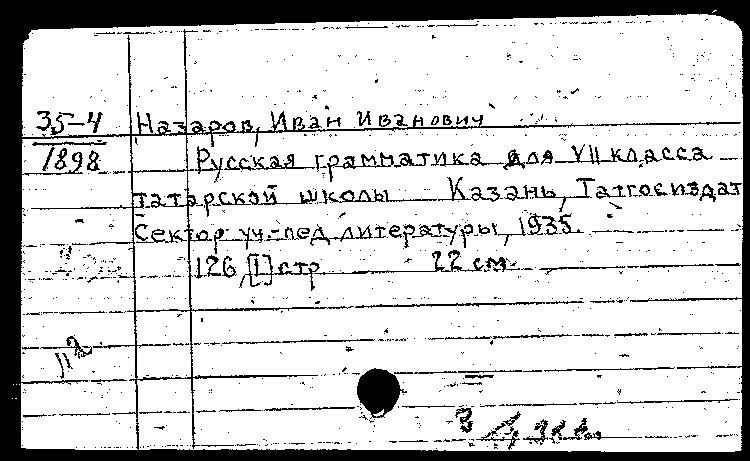 35-4
1898
Назаров, Иван Иванович
Русская грамматика для VII класса
татарской школы Казань, Татгосиздат
Сектор уч.-пед. литературы, 1935.
126, [1] стр. 22 см.